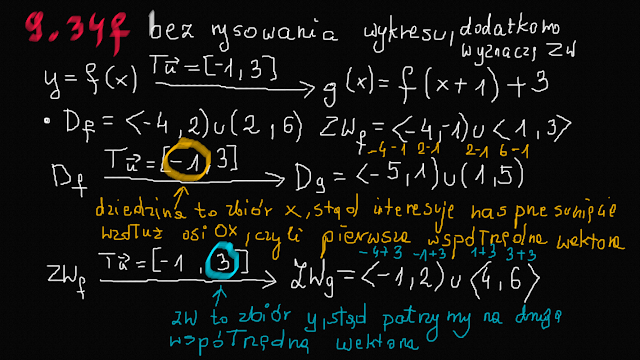 9.34f bez rysowania wykresu, dodatkowo
wyznaczę ZW
y=f(x) Tu⃗=[-1,3] g(x)=f(x+1)+3
• Df=<-4,2)∪(2,6) ZWf=<-4,-1)∪<1,3>
-4-1 2-1 2-1 6-1
Df Tu⃗=[-1,3] Dg=<-5,1)∪(1,5)
dziedzina to zbiór x, stąd interesuje nas przesunięcie
wzdłuż osi OX, czyli pierwsza współrzędna wektora
-4+3 -1+3 1+3 3+3
ZWf Tu⃗=[-1,3] ZWg=<-1,2)∪<4,6>
ZW to zbiór y, stąd patrzymy na drugą
współrzędną wektora